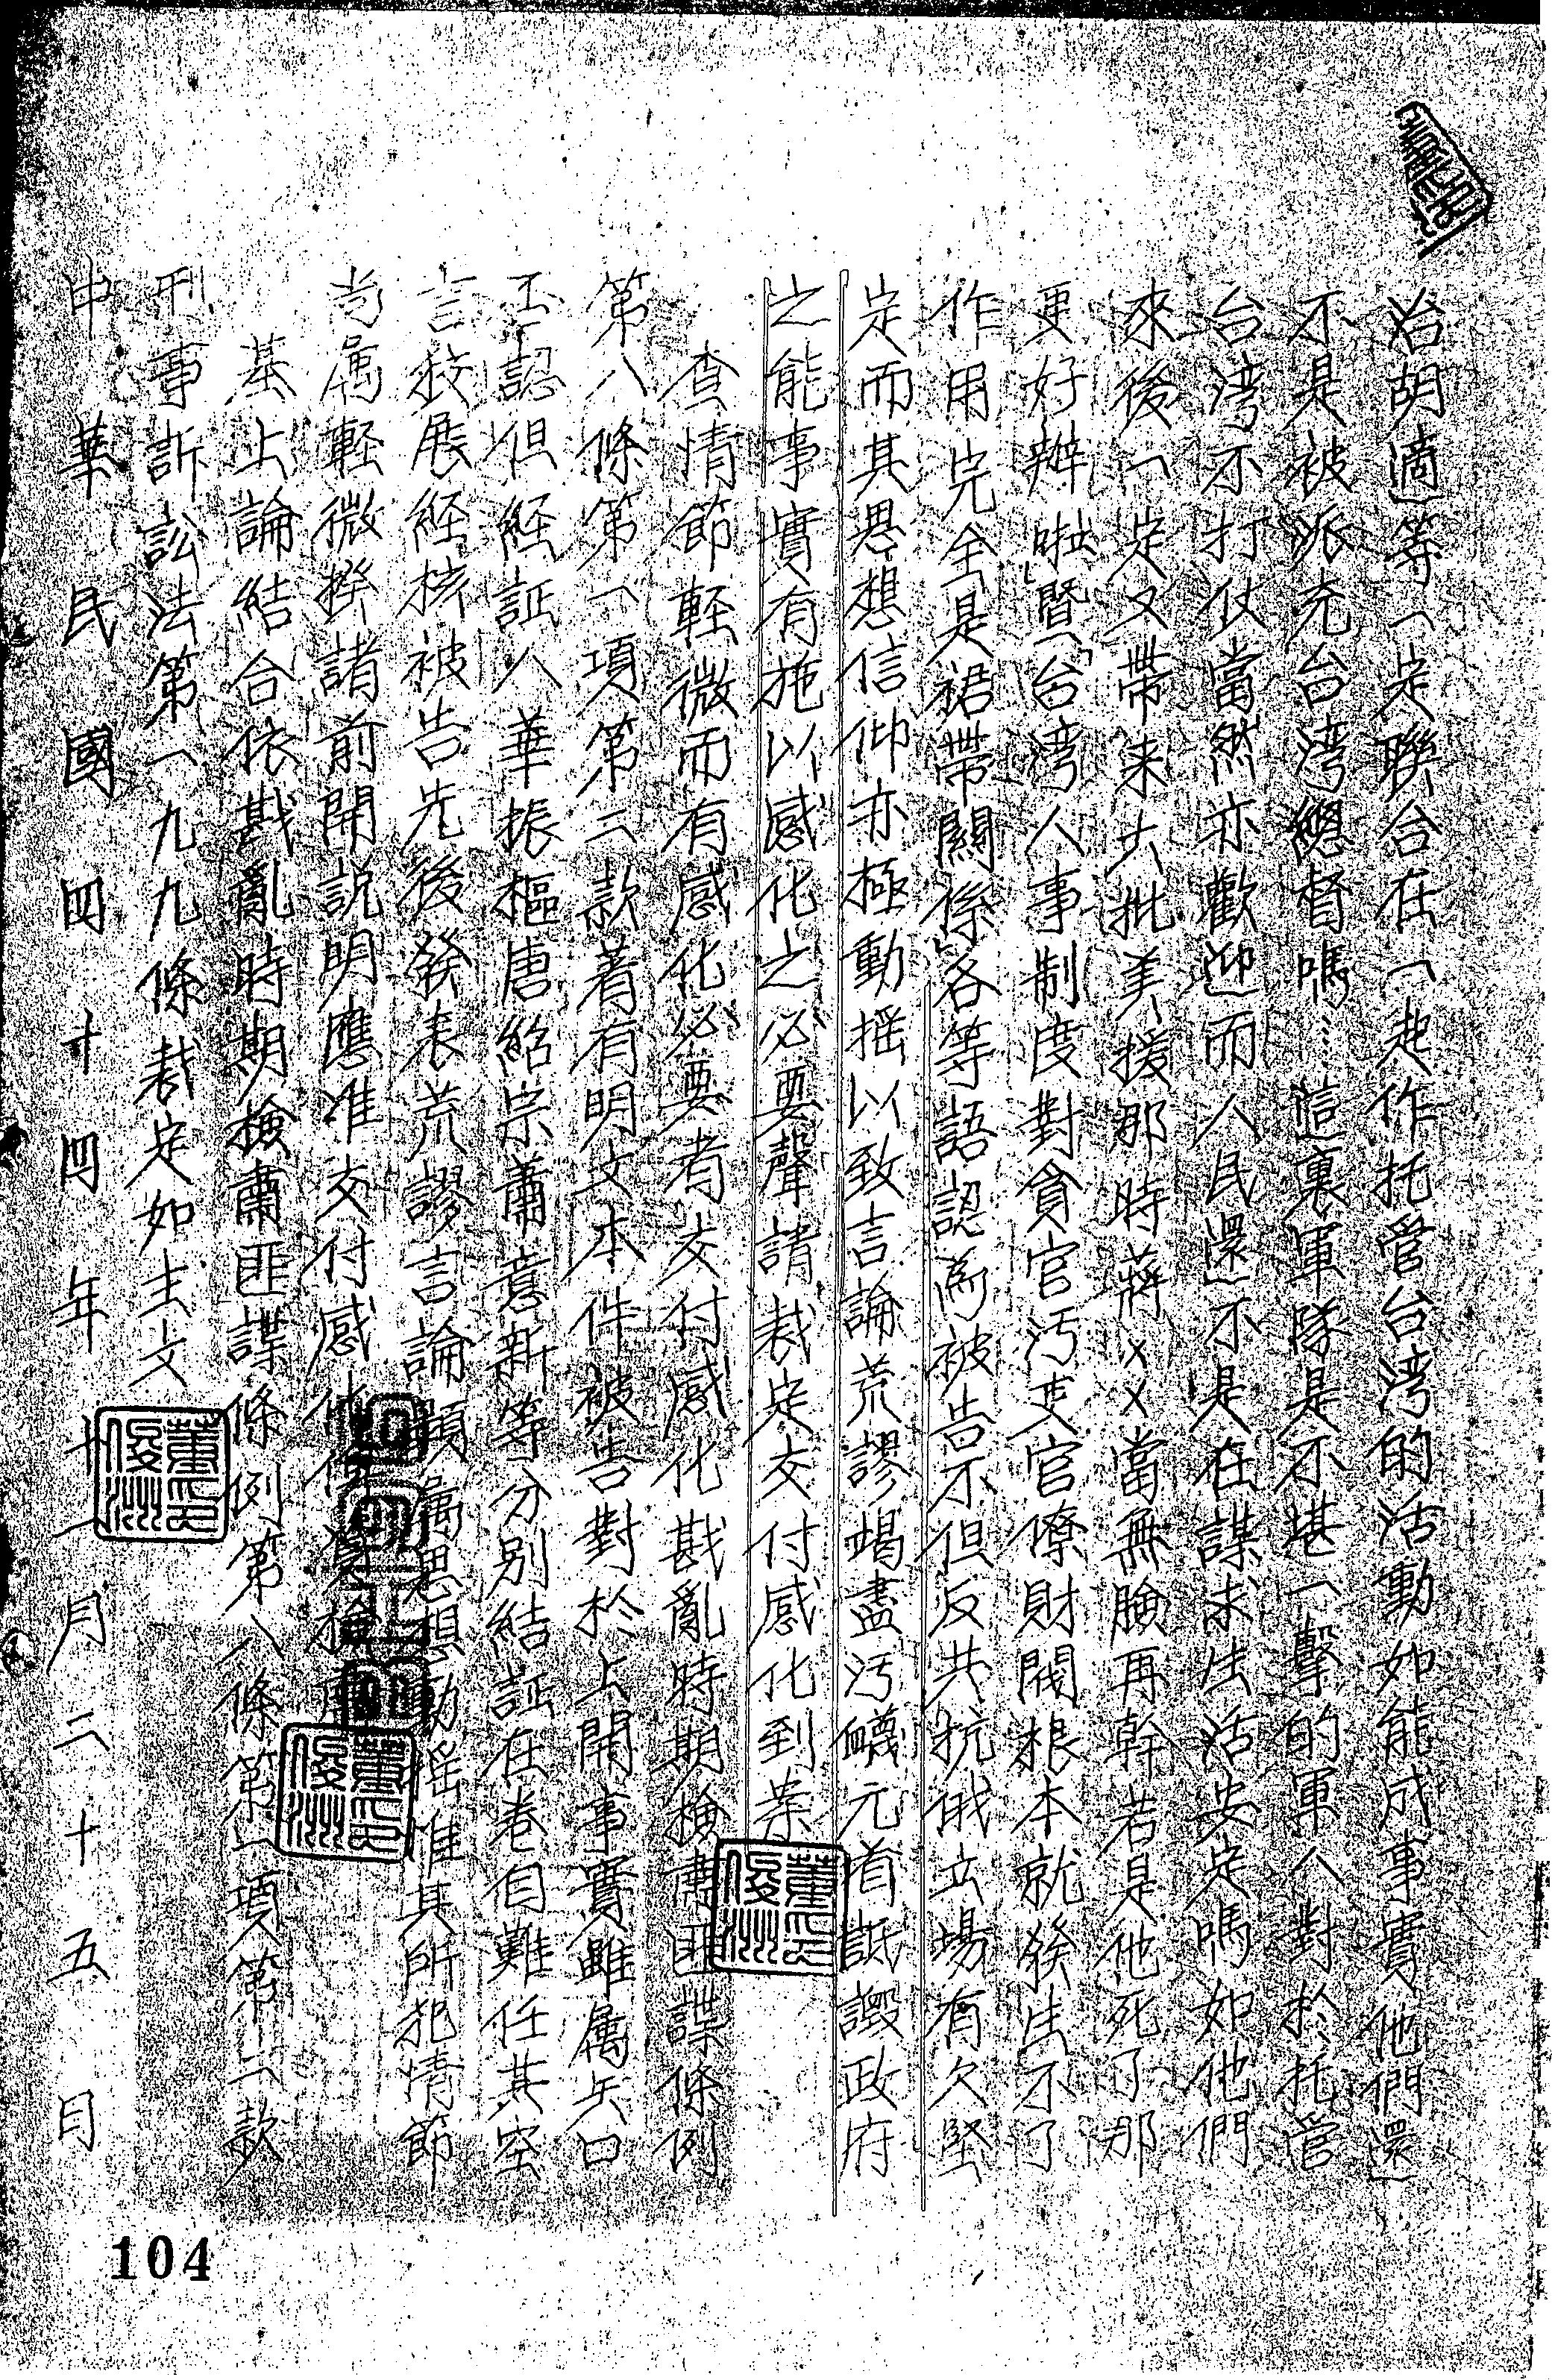 治胡適」等一定聯合在一起作托管台湾的活動如能成事實他們還」
不是被派充台湾總督嗎……這裏軍隊是不堪一擊的軍人對於托管
台湾不打仗當然亦歡迎而人民還」不是在謀求生活安定嗎如他們
來後一定又帶来大批美援那時蔣××當無臉再幹若是他死了那
更好辦啦」暨「台湾人事制度對貪官污吏官僚財閥根本就發生不了
作用完全是裙帶關係」各等語認為被告不但反共抗俄立場有欠堅
定而其思想信仰亦極動摇以致言論荒謬竭盡污衊元首詆譭政府
之能事實有施以感化之必要聲請裁定交付感化到案
查情節輕微而有感化必要者交付感化戡亂時期檢肅匪諜條例
第八條第一項第二款著有明文本件被告對於上開事實雖属矢口
否認但經証人華振樞唐紹宗蕭意新等分別結証在卷自難任其空
言狡展經核被告先後發表荒謬言論 属思想動摇惟其所犯情節
尚属輕微揆諸前開説明應准交付感化
基上論結合依戡亂時期檢肅匪諜條例第八條第一項第二款
刑事訴訟法第一九九條裁定如主文
中華民國四十四年十一月二十五日
董俊洲
董俊洲
董俊洲
104